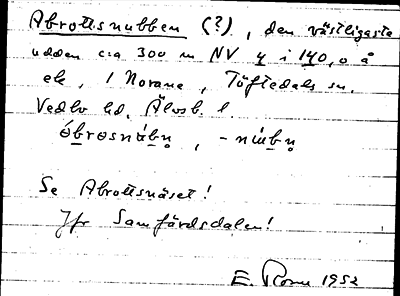 Abrottsnubben (?), den västligaste
udden c:a 300 m NV y i 140,0 å
ek, i Norane, Töftedals sn.
Vedbo hd, Älvsb. l.
óbrosnábn̥, -núbn̥
Se Abrottsnäset!
Jfr Samfärdsdalen!
E. 1952